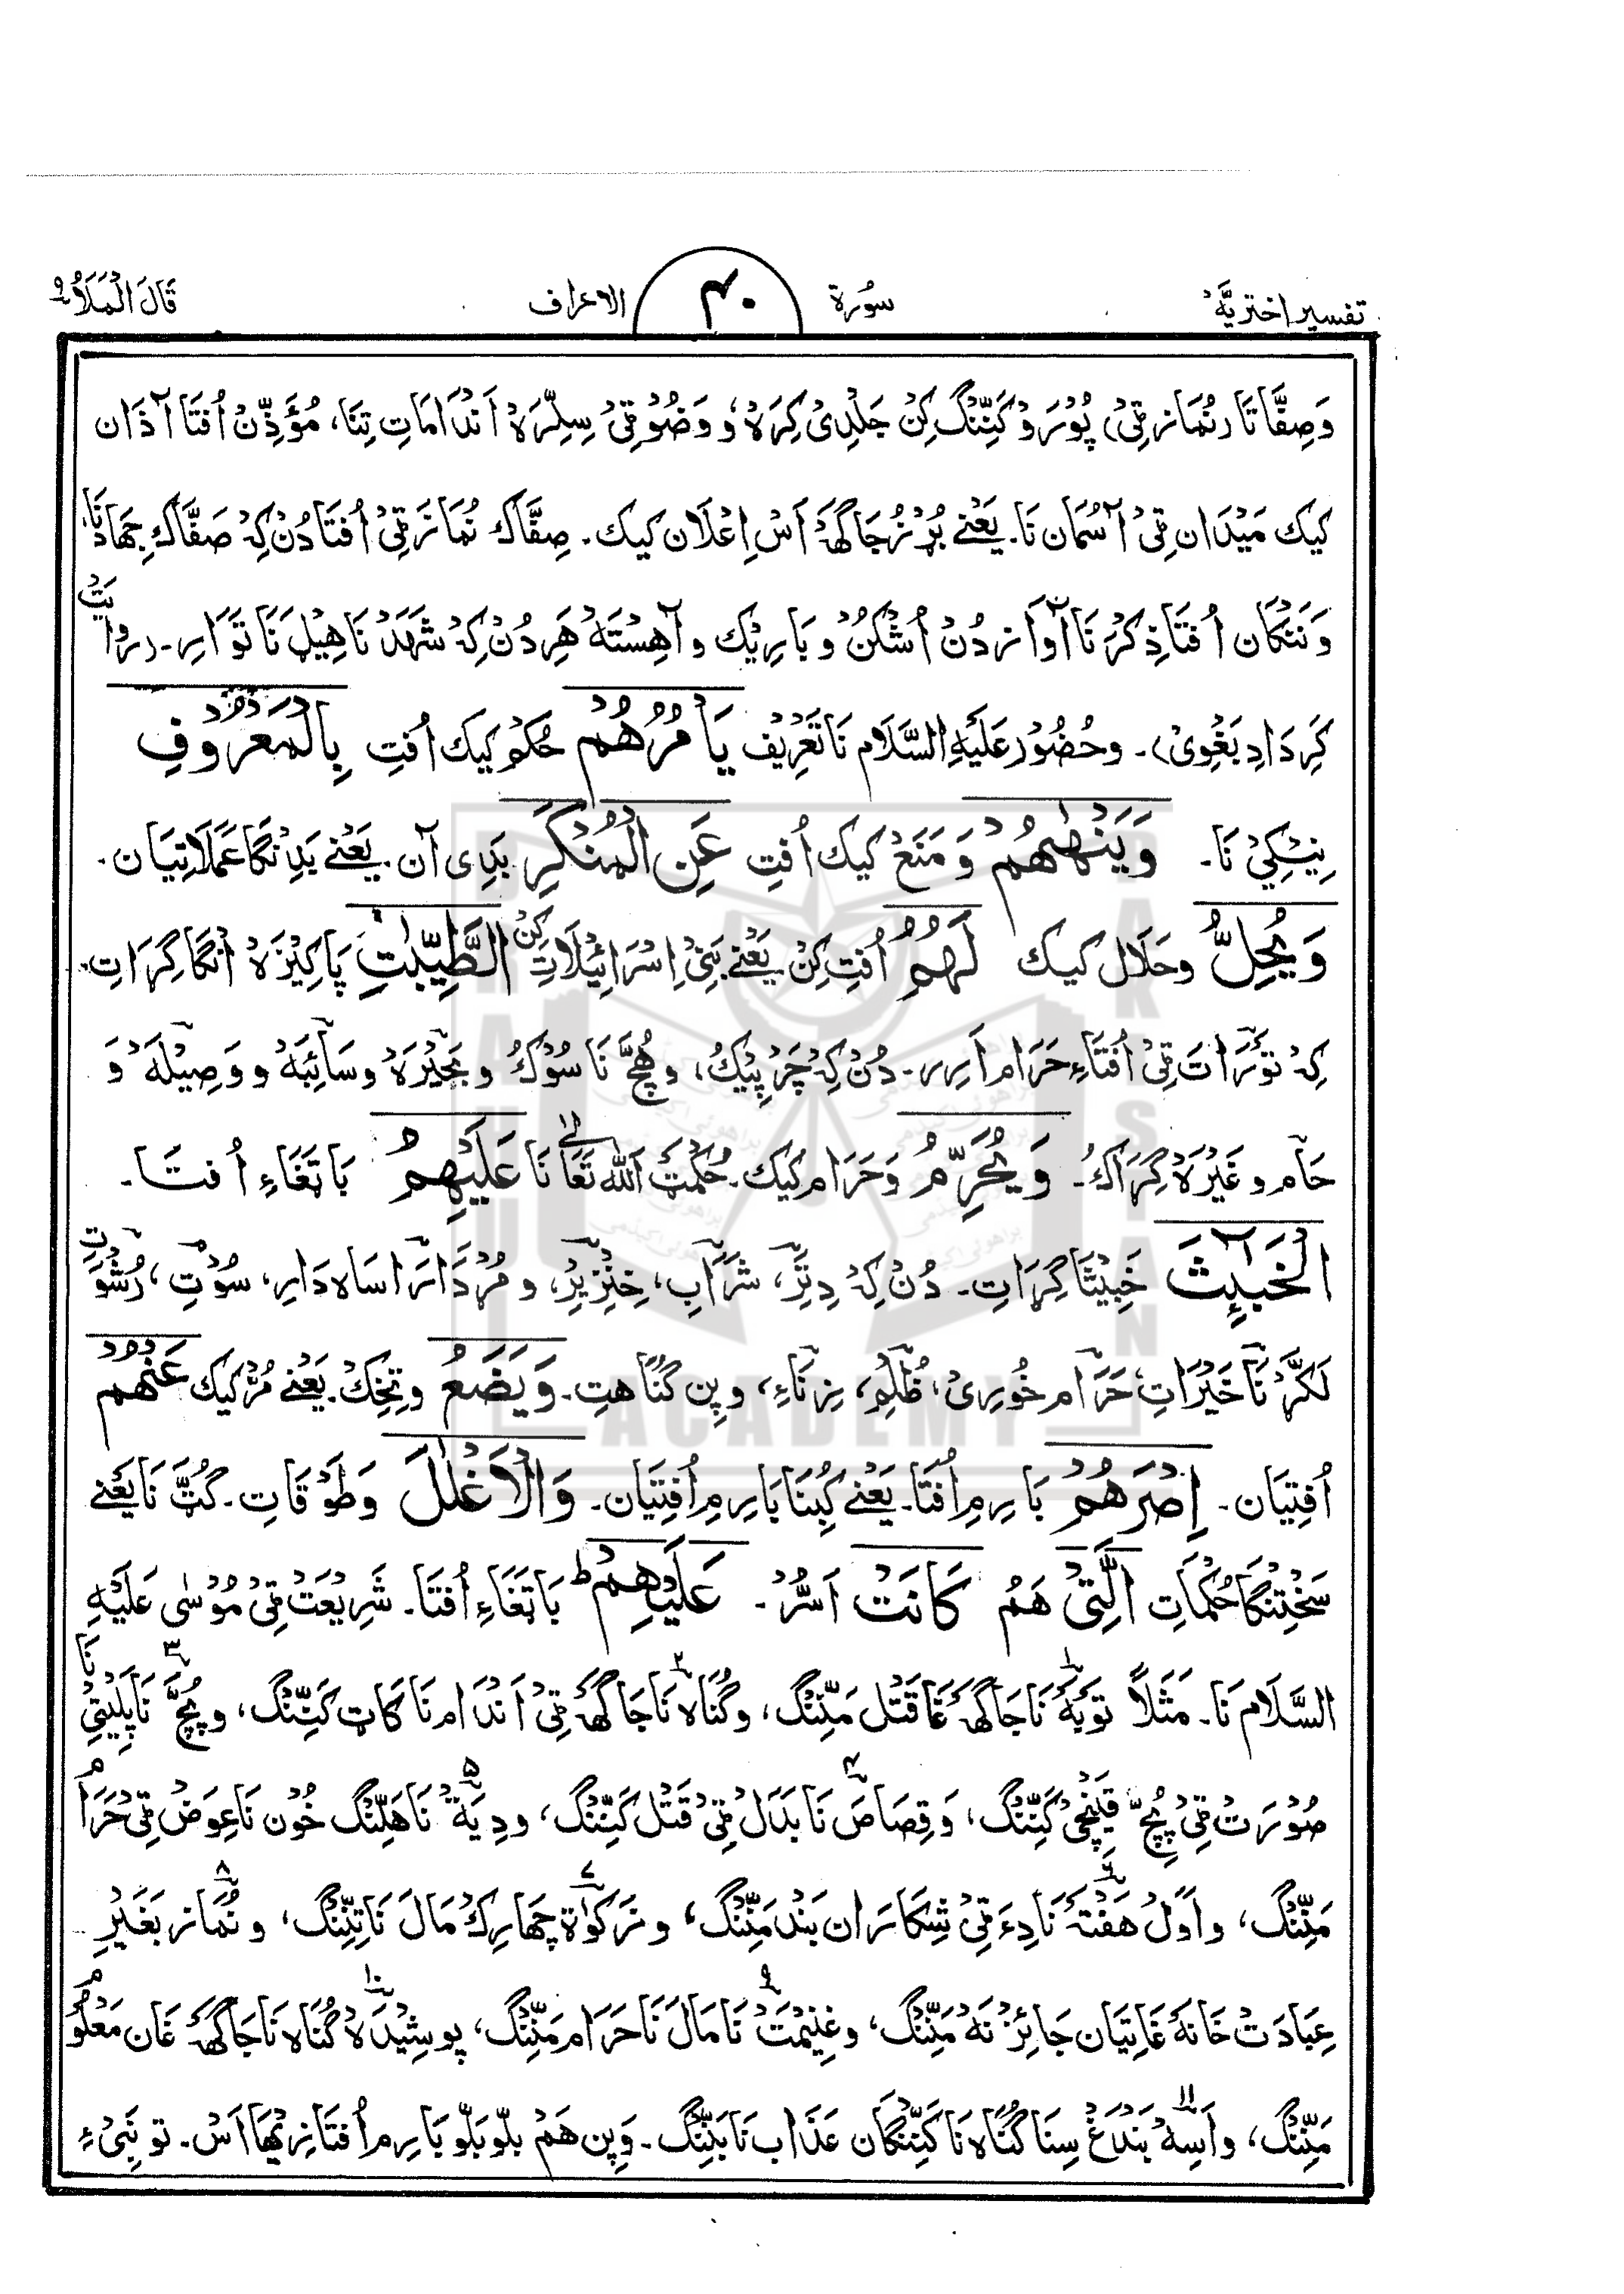 تفسیر اختریّہ سُورۃ ۴۰ الاعراف قَالَ الْمَلَاُ ۹
وَصِفَّاتَا (نُمَاز ٹِیْ) پُوْرَ وْ کَنِّنْگ کِنْ جَلْدِیْ کِرَہْ، وَ وَضُوْ ٹِیْ سِلِّرَہْ اَنْدَامَاتِ تِنَا، مُؤَذِّنْ اُفْتَا آذَان
کیک مَیْدَان ٹِیْ آسُمَان نَا۔ یَعْنے بُرْزُ جَاگَھَ اَسْ اِعْلَان کیک۔ صِفَّاکْ نُمَازَ ٹِیْ اُفْتَا دُنْ کِہْ صَفَّاکْ جِھَادْنَا،
وَنَنْکَان اُفْتَا ذِکْرَ نَا آوَاز دُنْ اُشْکُنْ و بَارِیْک و آھِسْتَہْ ھَرِ دُنْ کِہْ شَہْدَ نَا ھِیْلَ نَا تَوَارِ۔ (رِوَایَتْ
کَرِ دَادِ بَغْوِیْ)۔ وحُضُوْر عَلَیْہِ السَّلَام نَا تَعْرِیْف یَاْمُرُهُمْ حُکْمْ کیک اُفتِ بِالْمَعْرُوفِ
نِیْکِیْ نَا۔ وَیَنْهٰىهُمْ وَ مَنَعْ کیک اُفتِ عَنِ الْمُنْكَرِ بَدِی آن۔ یَعْنے بَدِنْگَا عَمَلَاتِیَان۔
وَیُحِلُّ وحَلَال کیک لَهُمُ اُفتِ کِنْ یَعْنے بَنِیْ اِسْرَائِیْلَاتِ کِنْ الطَّیِّبٰتِ پَاکِیْزَہْ اَنْگَا گِرَاتِ۔
کِہْ تَوْرَاتَ ٹِیْ اُفْتَاءِ حَرَام اَرِر۔ دُنْ کِہْ چَرْپِیْکْ، و ھُچَّ نَا سُوْکْ و بَحِیْرَہْ و سَآئِبَہْ و وَصِیْلَہْ وَ
حَآم و غَیْرَہْ گِرَاکْ۔ وَیُحَرِّمُ وَحَرَام کیک۔ حُکْمَتْ اَللہ تَعَالٰی نَا عَلَیْهِمُ بَا تَغَاءِ اُفتَا۔
الْخَبٰٓئِثَ خَبِیْثَا گِرَاتِ۔ دُنْ کِہْ دِتَّرِ، شَرَابِ، خِنْزِیْرِ، و مُرْدَارَا سَاہ دَارِ، سُوْتِ، رِشْوَتِ
لَکَّرْ نَا خَیْرَاتِ، حَرَام خُورِیْ، ظُلِمْ، زِنَاءِ، و پِن گُنَاھتِ۔ وَیَضَعُ و تِخِکْ۔ یَعْنے مُرْ کیک عَنْهُمْ
اُفتِیَان۔ اِصْرَهُمْ بَارِمِ اُفتَا۔ یَعْنے کُبِنَا بَارِمِ اُفتِیَان۔ وَالْاَغْلٰلَ وَطَوْقَاتِ۔ گُٹَّ نَا یَعْنے
سَخْتِنْگَا حُکْمَاتِ الَّتِیْ ھَمْ كَانَتْ اَسُّرْ۔ عَلَیْهِمْ ط بَا تَغَاءِ اُفتَا۔ شَرِیْعَتْ ٹِیْ مُوْسٰی عَلَیْہِ
السَّلَام نَا۔ مَثَلًا ۱ تَوبَہْ نَا جَاگَھَ غَا قَتْل مَنِّنْگ، ۲ وگُنَاہ نَا جَاگَھَ ٹِیْ اَنْدَام نَا کَاتِ کَنِّنْگ، ۳ و پُچَّ نَا پَلِیْتِیْ نَا
صُوْرَتْ ٹِیْ پُچِّ قَیْنچِیْ کَنِّنْگ، ۴ وَقِصَاصَ نَا بَدَلْ ٹِیْ قَتْل کَنِّنْگ، ۵ ودِیَۃْ نَا ھَلِّنْگ خُون نَا عِوَضْ ٹِیْ حَرَامْ
مَنِّنْگ، ۶ واَوَّلْ ھَفْتَہْ نَا دِءَ ٹِیْ شِکَارَ ان بَنْد مَنِّنْگ، ۷ و زَکٰوۃ چِھَارِکْ مَالَ نَا تِنِّنْگ، ۸ و نُمَاز بَغَیْرِ
عِبَادَتْ خَانَہْ غَاتِیَان جَائِزْ نَہْ مَنِّنْگ، ۹ و غِنِیْمَتْ نَا مَالَ نَا حَرَام مَنِّنْگ، ۱۰ پوشِیْدَہْ گُنَاہ نَا جَاگَھَ غَان مَعْلُومْ
مَنِّنْگ، ۱۱ واَسِہْ بَنْدَغْ سِنَا گُنَاہ نَا کَنِّنْگَان عَذَاب نَا بَنِّنْگ۔ وَپِن ھَمْ بَلّو بَلّو بَارِم اُفتَا نِزْمَہَا اَسْ۔ تو نَبِیْءِ